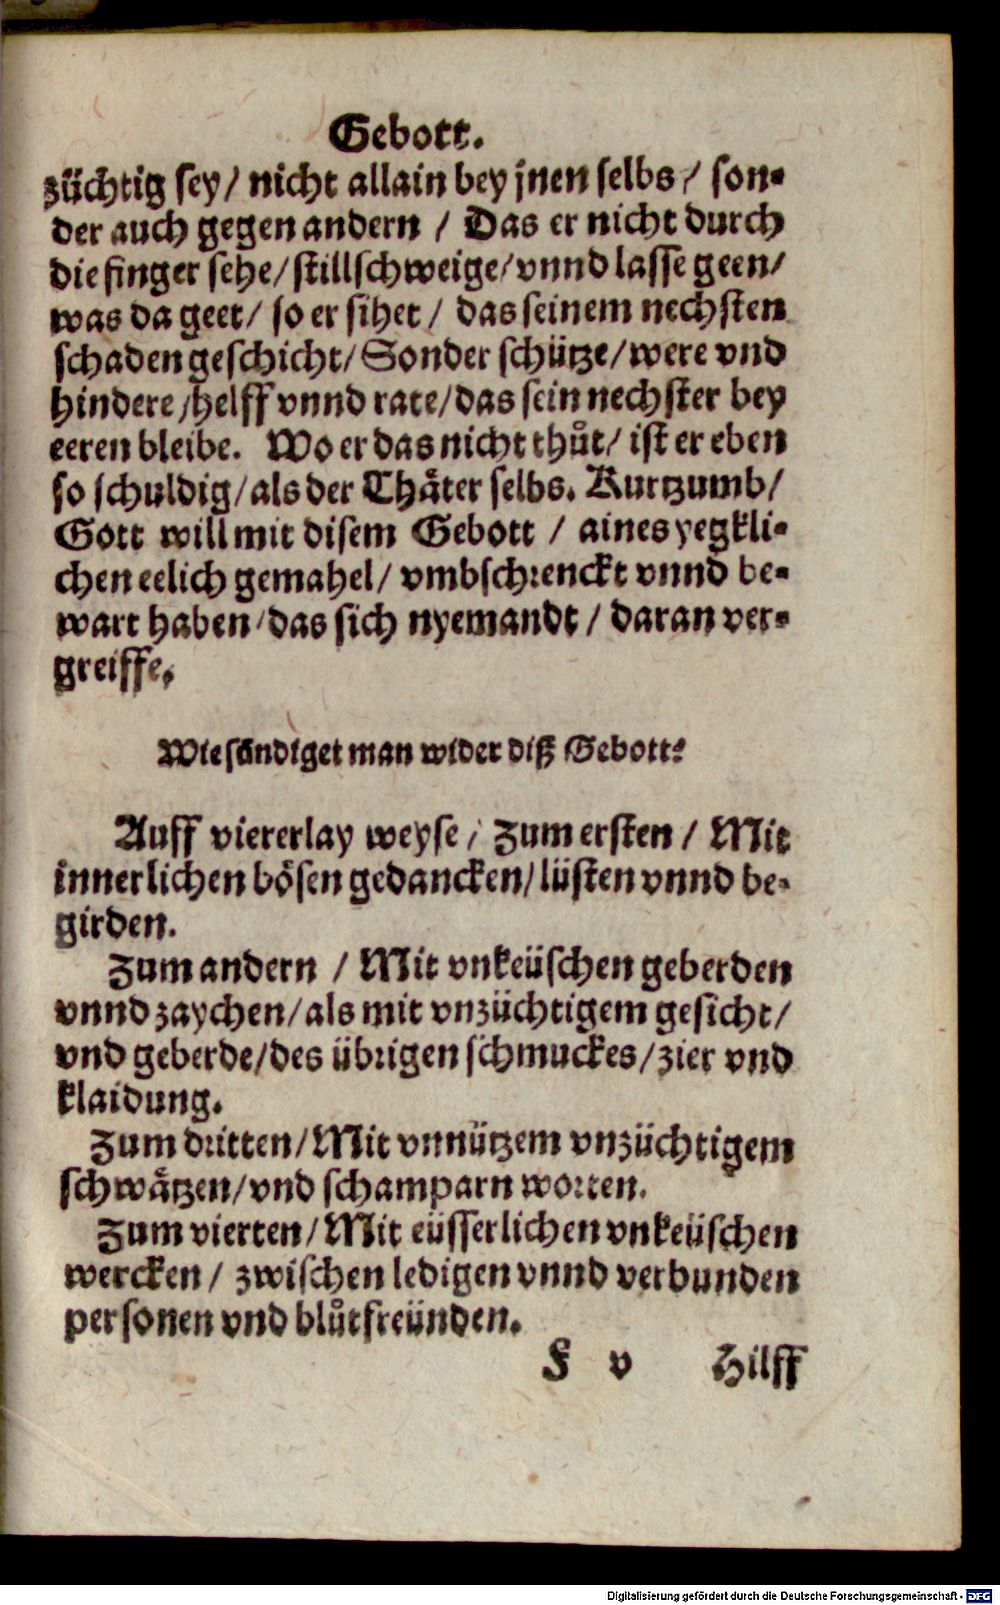 Gebott.
züchtig sey/ nicht allain bey jnen selbs/ son-
der auch gegen andern / Das er nicht durch
die finger sehe/ stillschweige/ vnnd lasse geen/
was da geet/ so er sihet / das seinem nechsten
schaden geschicht/ Sonder schütze/ were vnd
hindere/ helff vnnd rate/ das sein nechster bey
eeren bleibe. Wo er das nicht thůt/ ist er eben
so schuldig/ als der Thäter selbs. Kurtzumb/
Gott will mit disem Gebott / aines yegkli-
chen eelich gemahel/ vmbschrenckt vnnd be-
wart haben/ das sich nyemandt / daran ver-
greiffe.
Wie sündiget man wider diß Gebott?
Auff viererlay weyse / Zum ersten / Mit
innerlichen bösen gedancken/ lüsten vnnd be-
girden.
Zum andern / Mit vnkeüschen geberden
vnnd zaychen/ als mit vnzüchtigem gesicht/
vnd geberde/ des übrigen schmuckes/ zier vnd
klaidung.
Zum dritten/ Mit vnnützem vnzüchtigem
schwätzen/ vnd schamparn worten.
Zum vierten/ Mit eüsserlichen vnkeüschen
wercken/ zwischen ledigen vnnd verbunden
personen vnd blůtfreünden.
F v Hilff
Digitalisierung gefördert durch die Deutsche Forschungsgemeinschaft - DFG